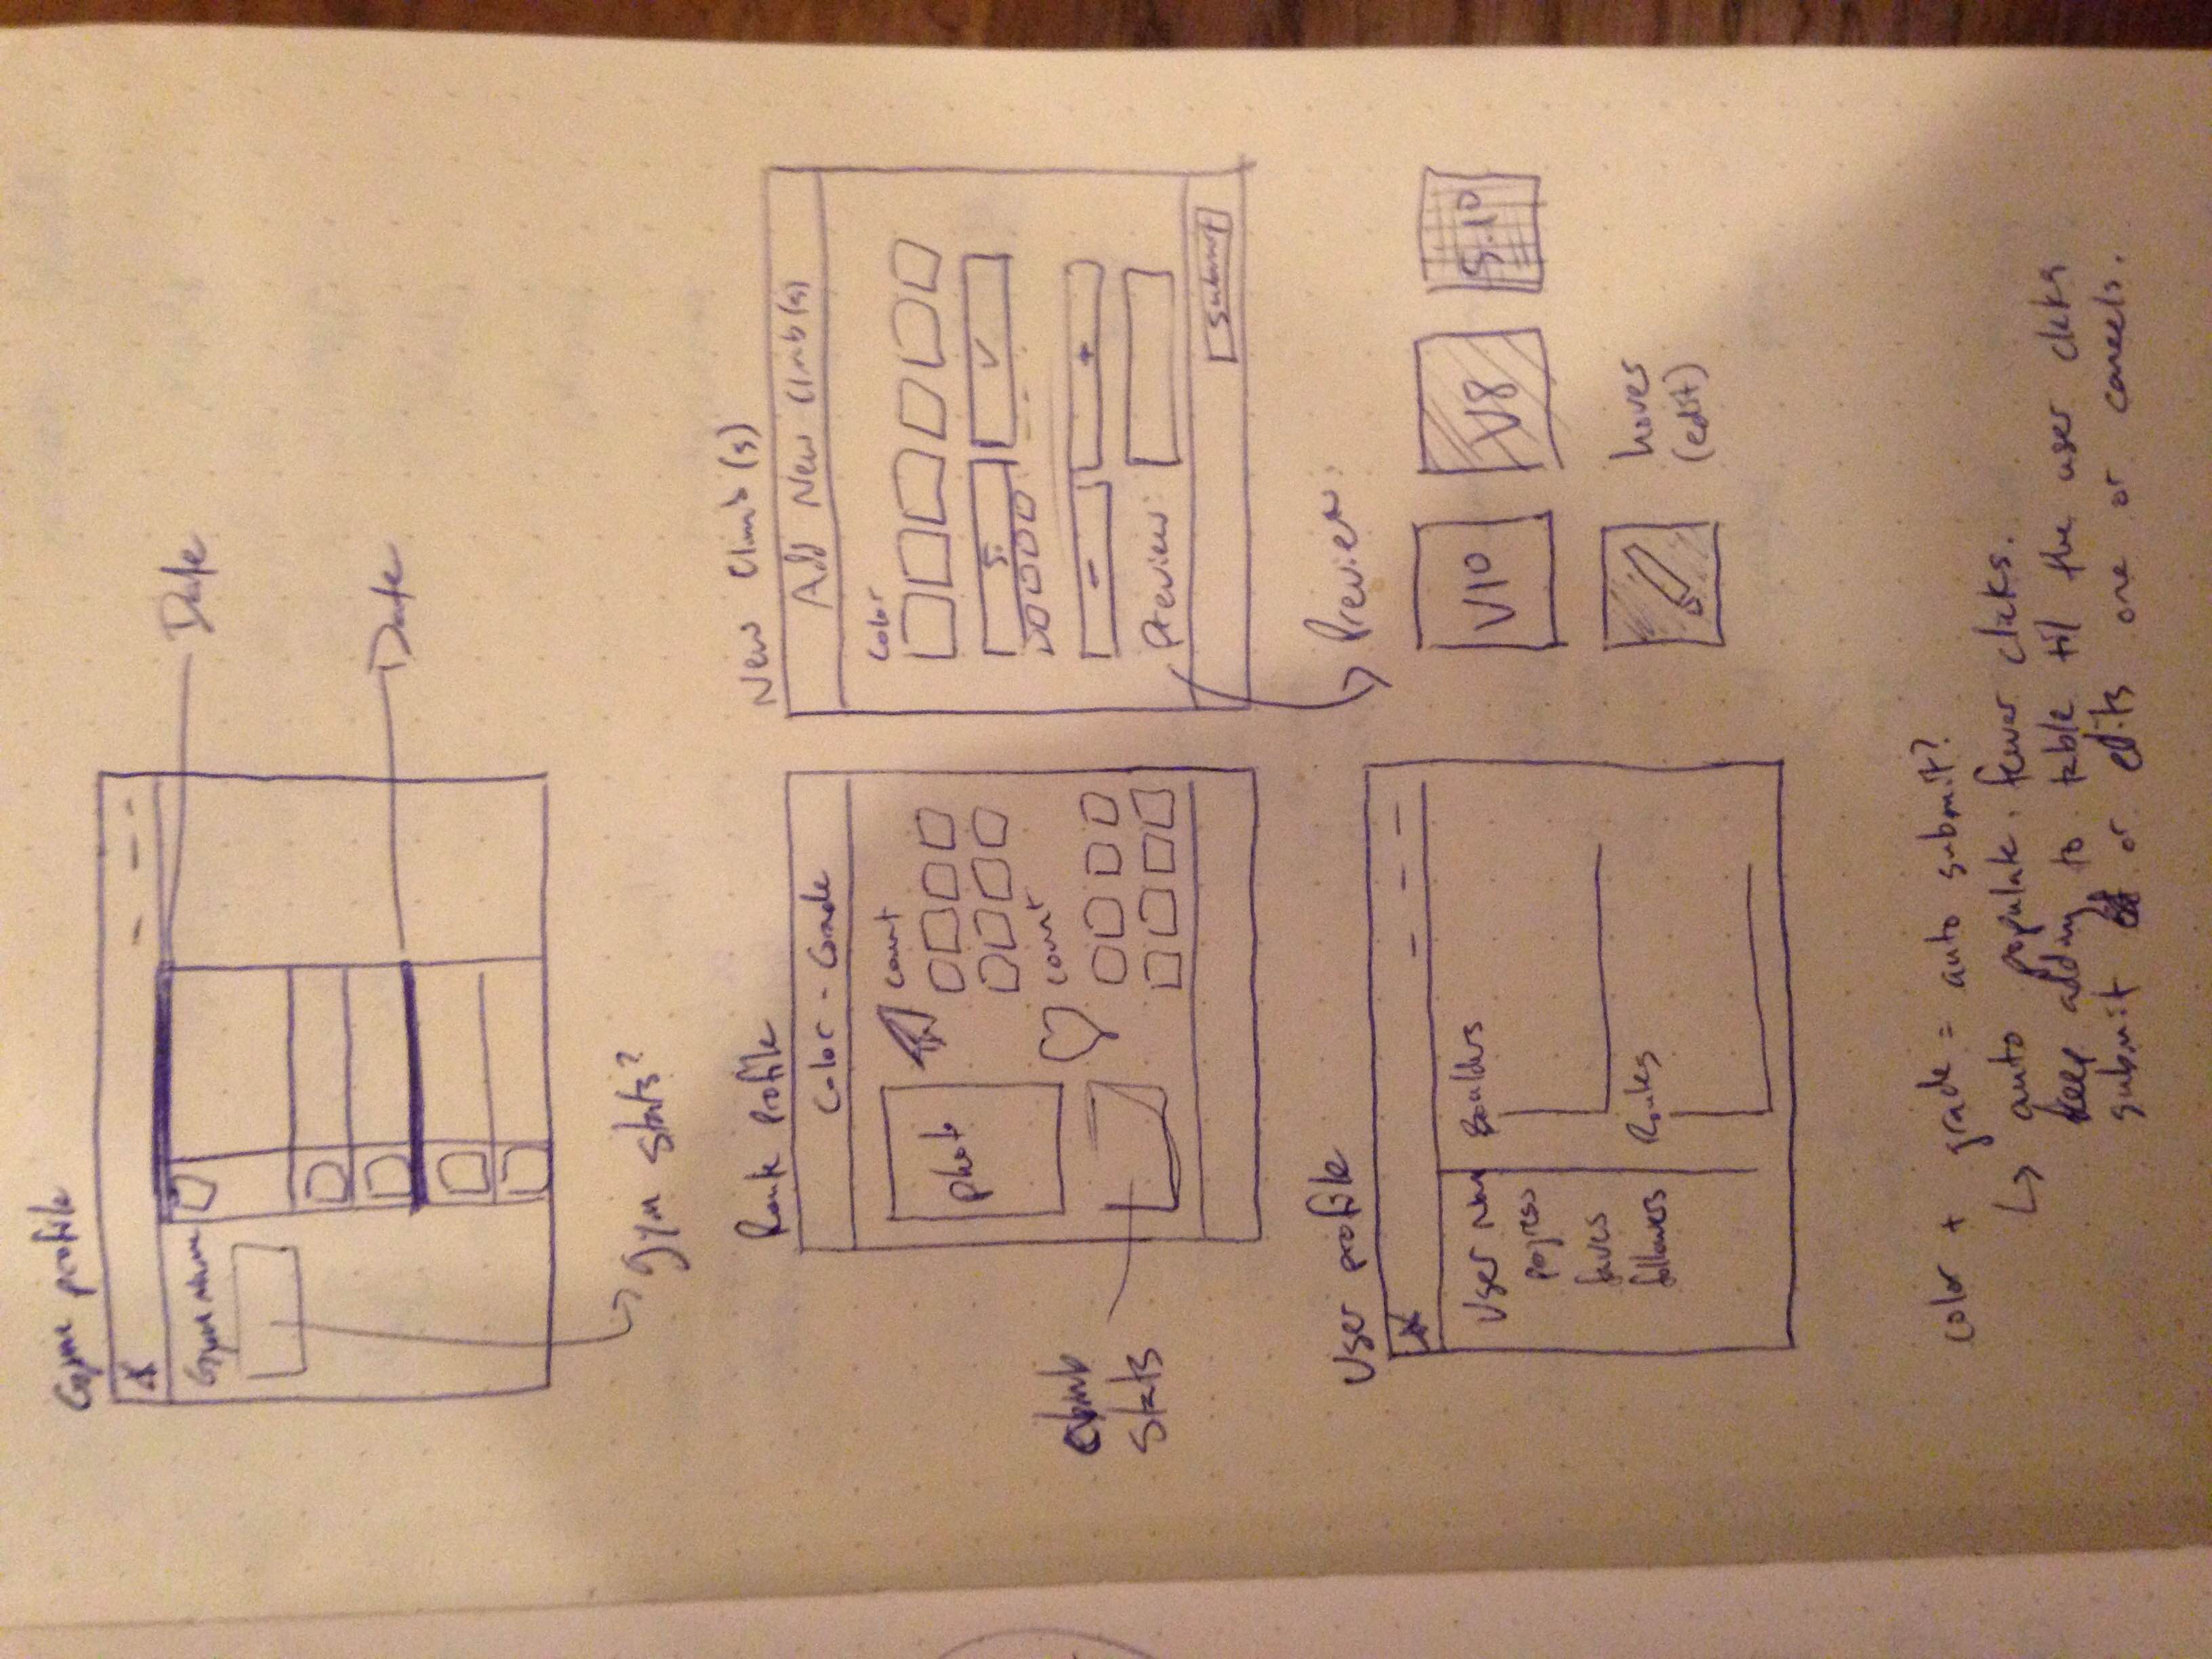 Gym profile
Gym name
Date
Date
gym stats?
Route profile
Color - Grade
photo
count
count
climb
stats
New Climb(s)
Add New Climb(s)
Color
5.
V
-
+
Preview:
Submit
Preview:
V10
V8
5.10
hover
(edit)
User profile
User Nam
progress
faves
followers
Boulders
Routes
color + grade = auto submit?
↳ auto populate. fewer clicks.
keep adding to table til the user clicks
submit or edits one or cancels.